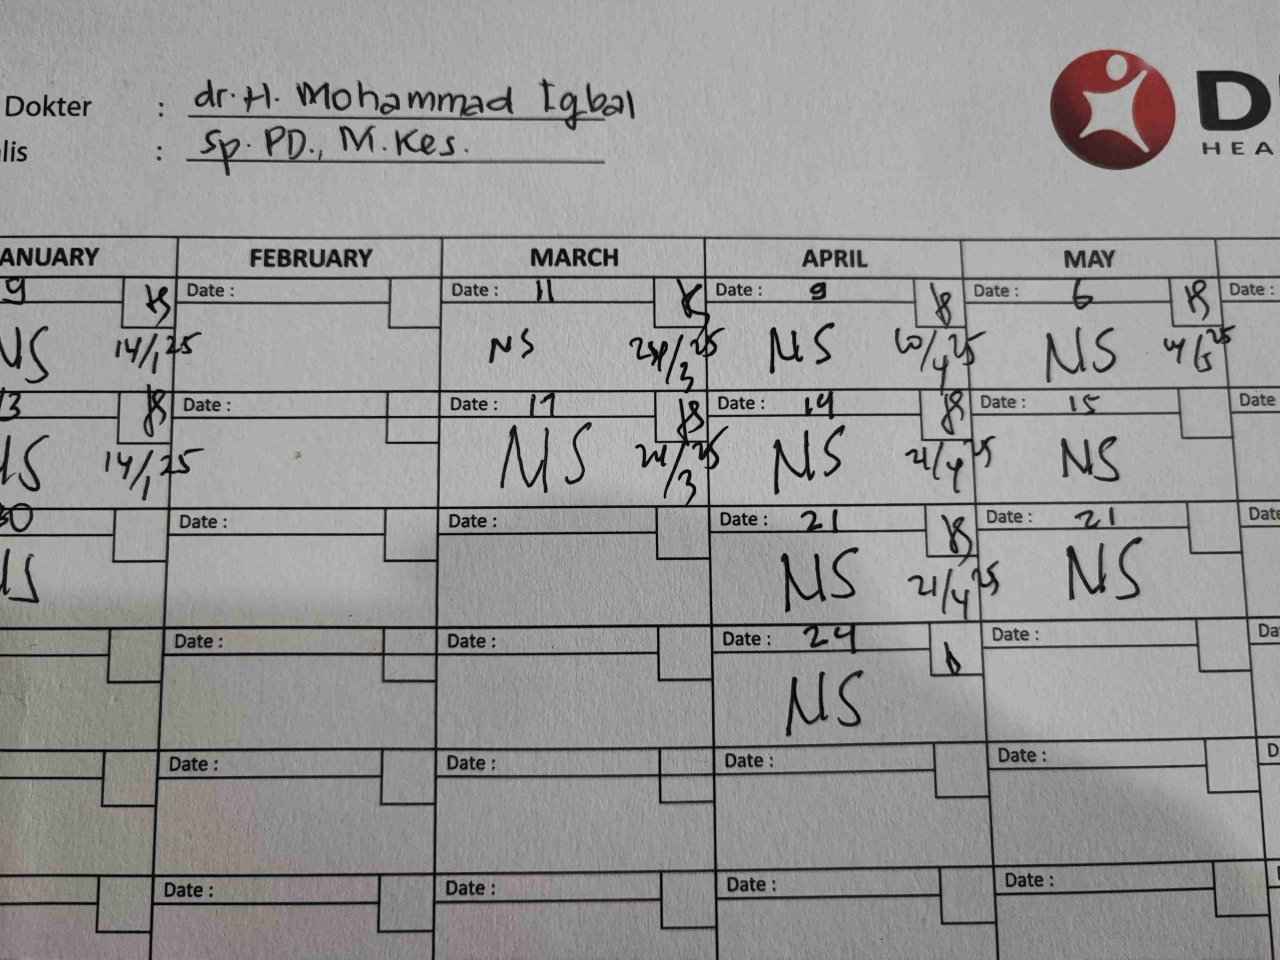 Dokter : dr. H. Mohammad Iqbal
lis : Sp. PD., M. Kes.
D
HEA
ANUARY FEBRUARY MARCH APRIL MAY
9 Date : Date : 11 Date : 9 Date : 6 Date :
NS 14/1 25 NS 24/3 25 NS 10/4 25 NS 25
13 Date : Date : 17 Date : 14 Date : 15 Date
NS 14/1 25 NS 24/3 25 NS 21/4 25 NS
30 Date : Date : Date : 21 Date : 21 Date
NS NS 21/4 25 NS
Date : Date : Date : 24 Date : Da
NS
Date : Date : Date : Date : D
Date : Date : Date : Date :